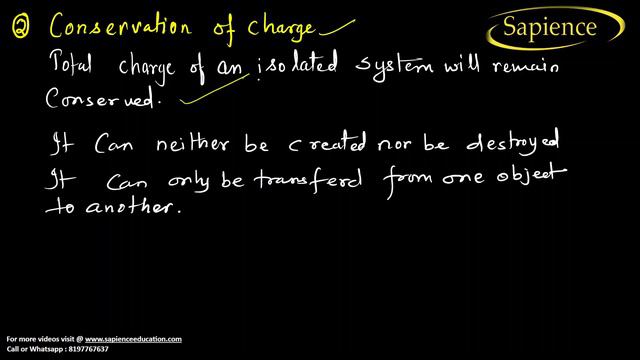 ② Conservation of charge
Sapience
Total charge of an isolated system will remain
Conserved.
It can neither be created nor be destroyed
It can only be transferd from one object
to another.
For more videos visit @ www.sapienceeducation.com
Call or Whatsapp : 8197767637